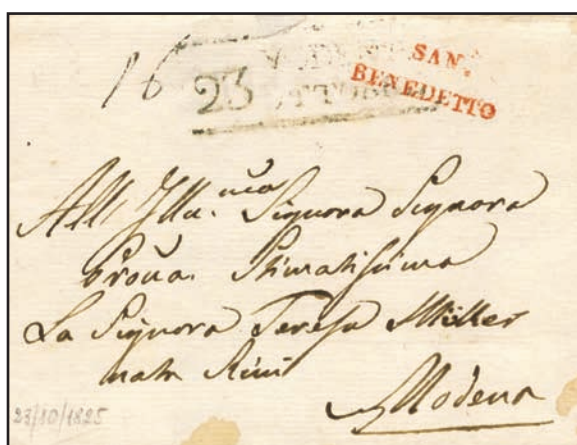 16
MODENA
23 OTTOBRE
SAN.
BENEDETTO
All Illu.ma Signora Signora
Prona. Stimatissima
La Signora Teresa Müller
nata Rini
Modena
23/10/1825